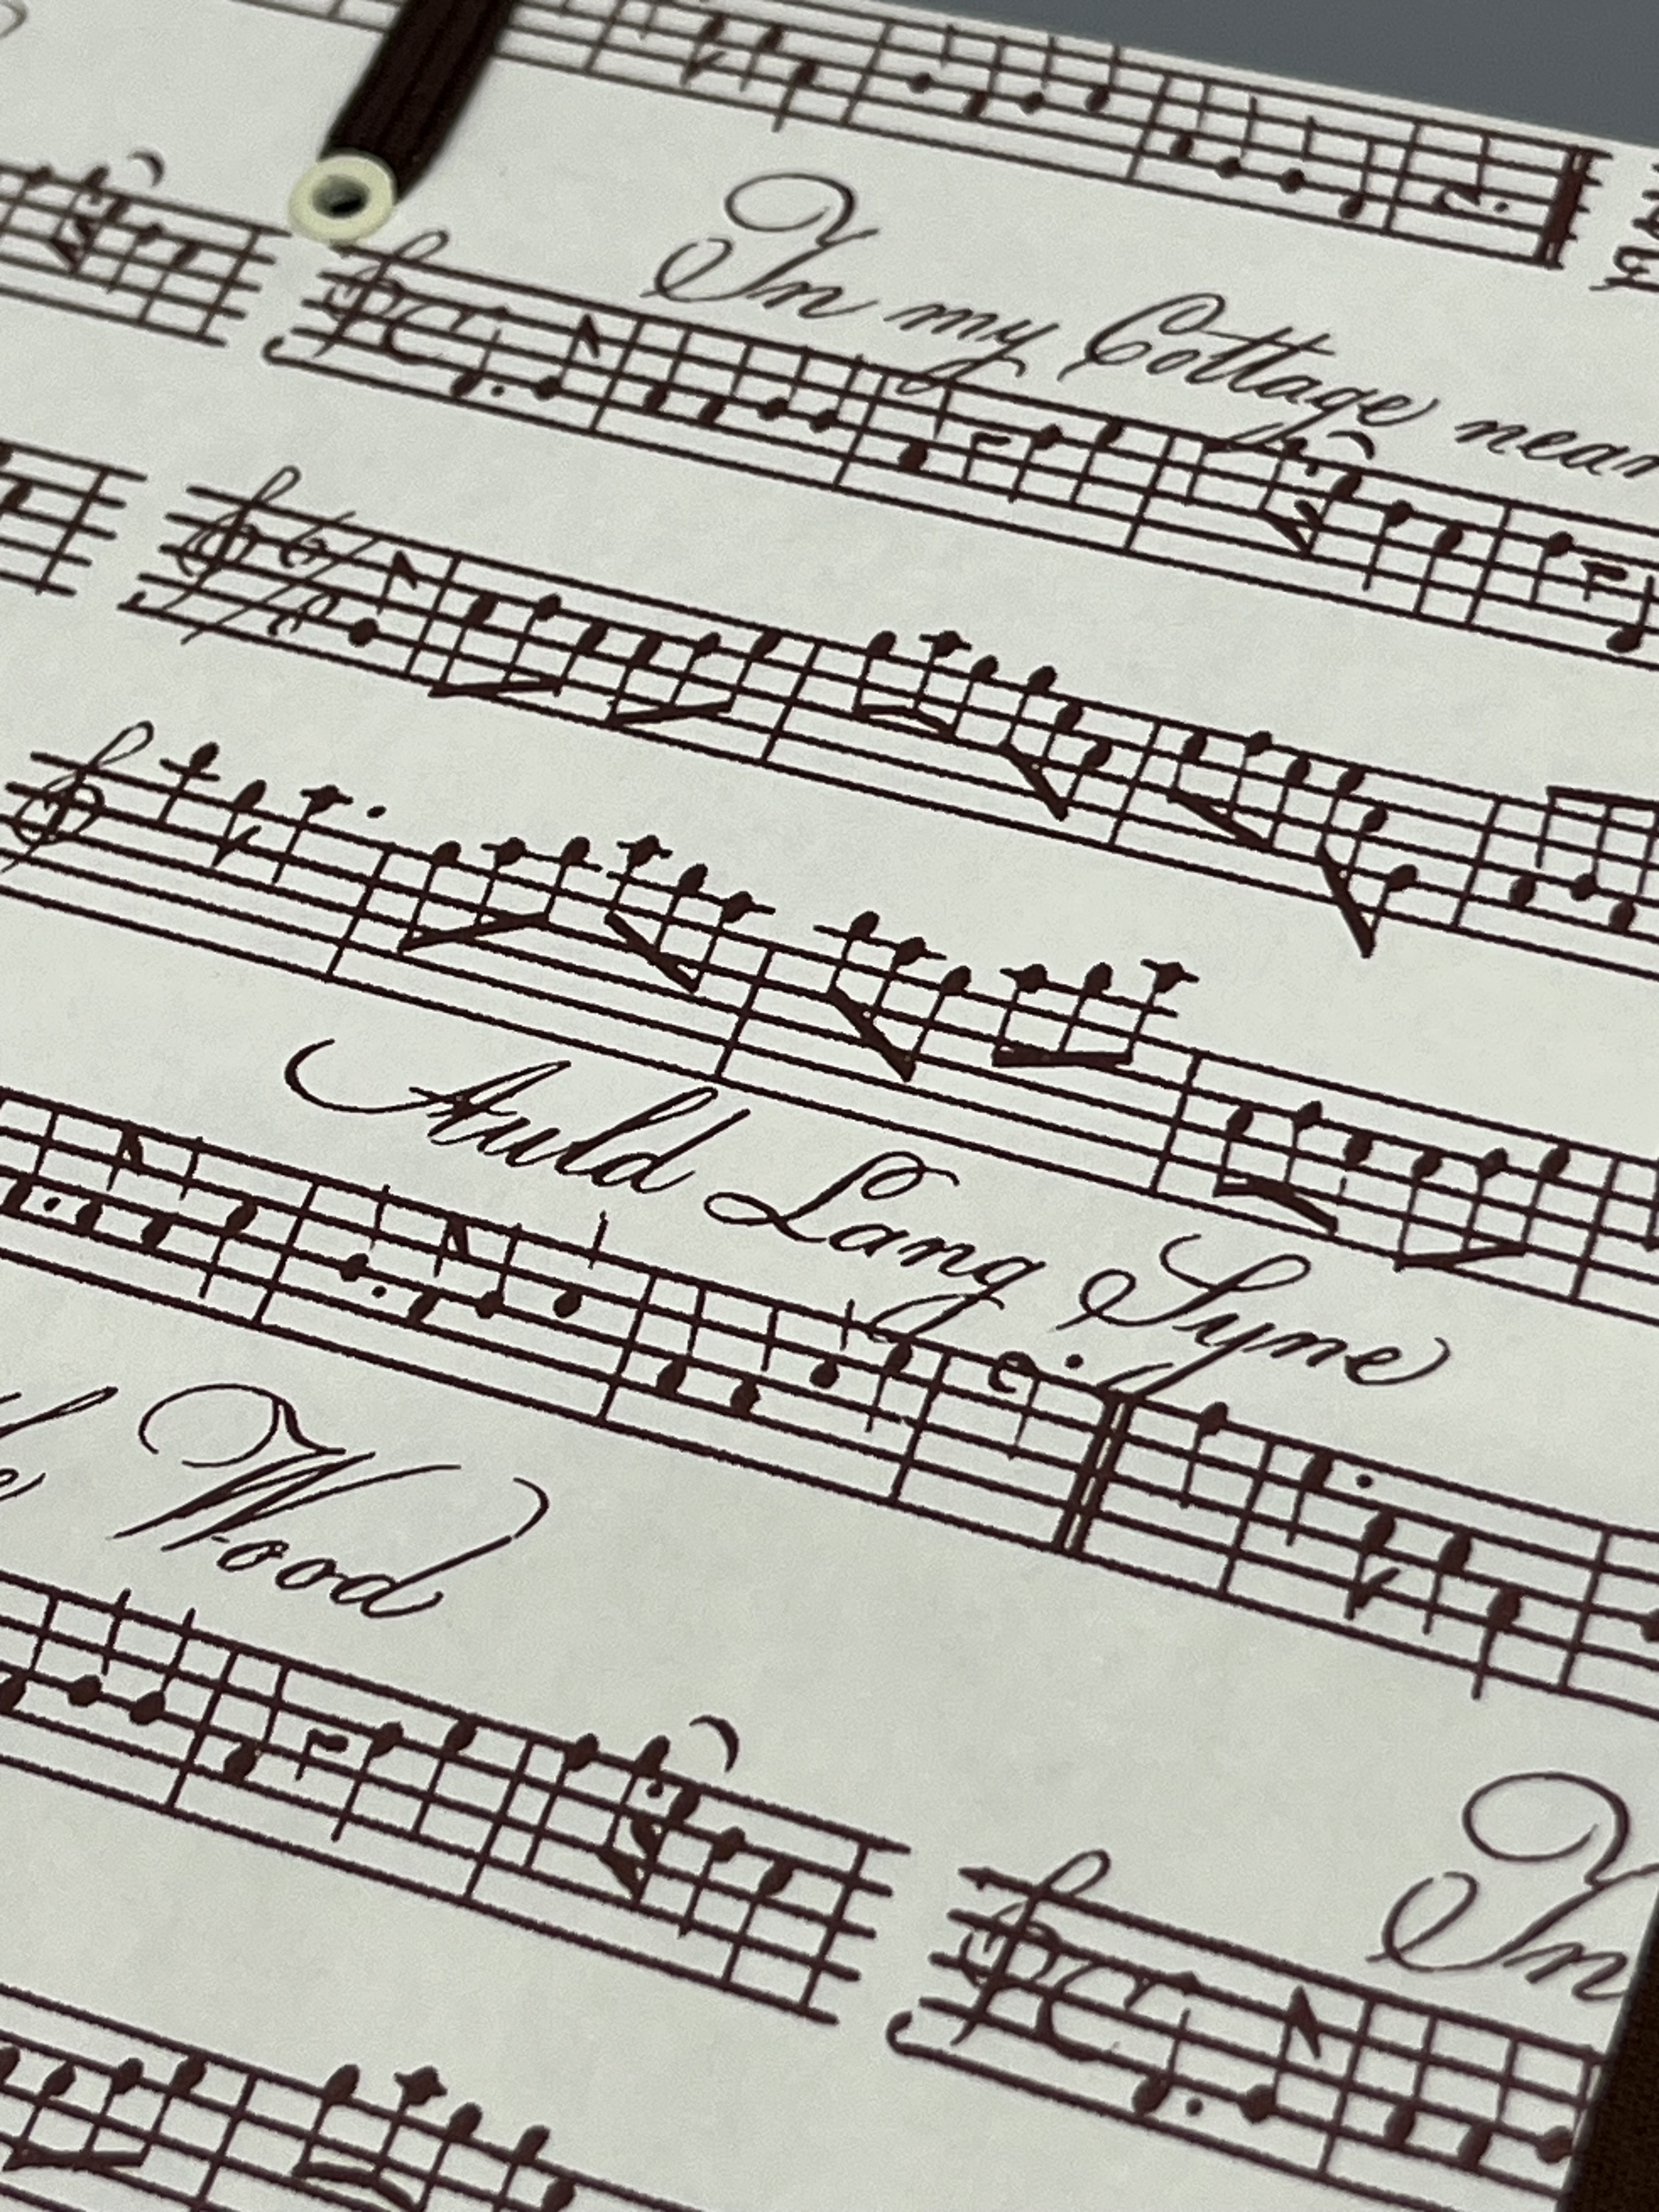 In my Cottage near
Auld Lang Syne
Wood
In